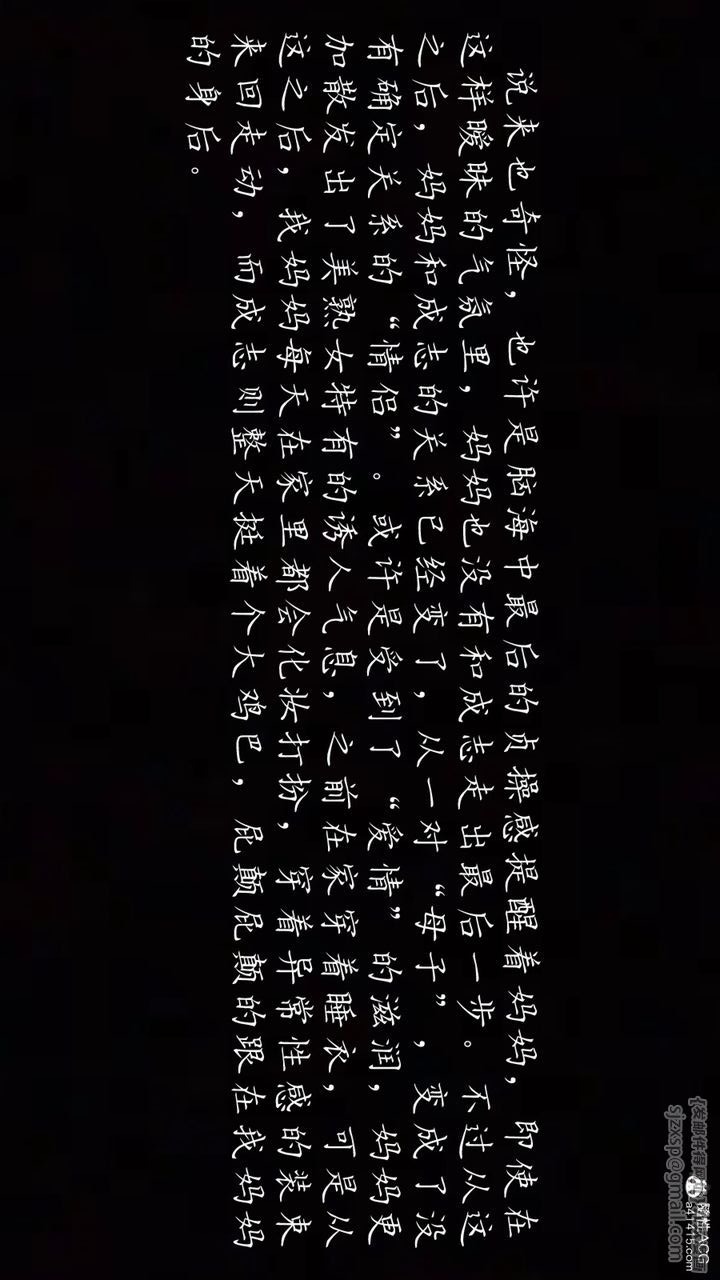 说来也奇怪，也许是脑海中最后的贞操感提醒着妈妈，即使在
这样暧昧的气氛里，妈妈也没有和成志走出最后一步。不过从这
之后，妈妈和成志的关系已经变了，从一对“母子”，变成了没
有确定关系的“情侣”。或许是受到了“爱情”的滋润，妈妈更
加散发出了美熟女特有的诱人气息，之前在家穿着睡衣，可是从
这之后，我妈妈每天在家里都会化妆打扮，穿着异常性感的装束
来回走动，而成志则整天挺着个大鸡巴，屁颠屁颠的跟在我妈妈
的身后。
sjzxsp@gmail.com
ACG
a41415.com